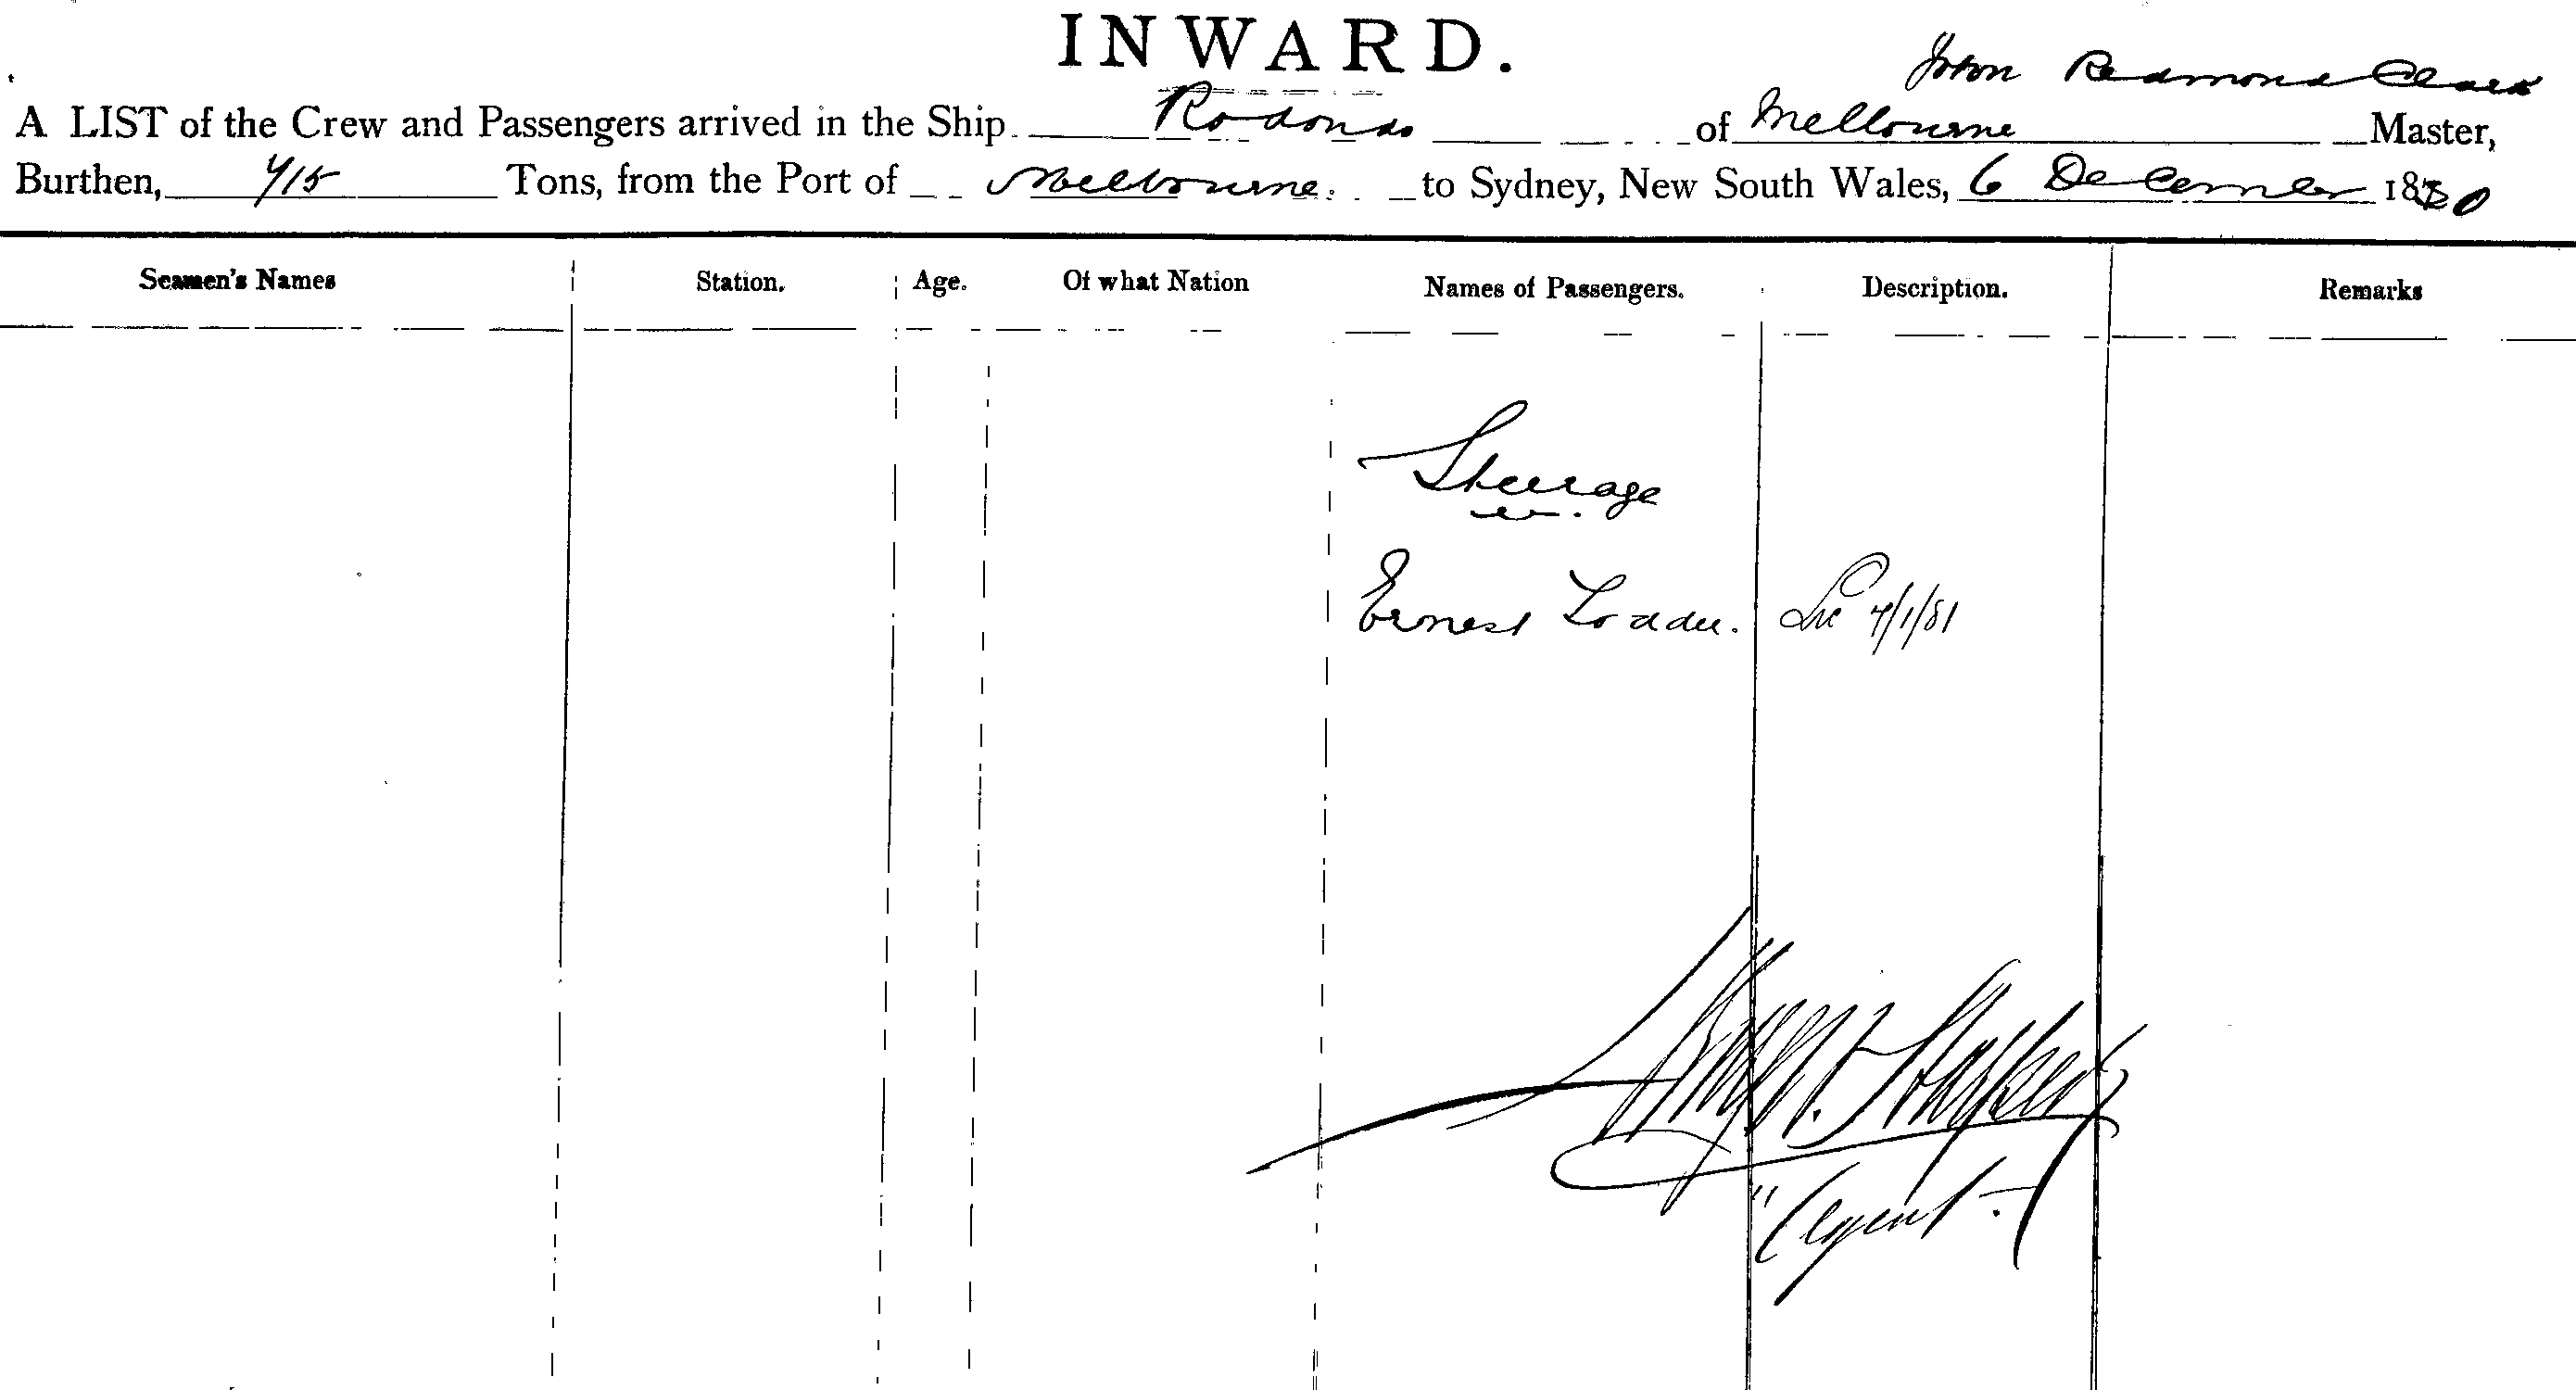 INWARD.
John Redmond Clark
A LIST of the Crew and Passengers arrived in the Ship Rodondo of Melbourne Master,
Burthen, 715 Tons, from the Port of Melbourne. to Sydney, New South Wales, 6 December 1880
Seamen's Names Station. Age. Of what Nation Names of Passengers. Description. Remarks
Steerage
Ernest Loader. 7/1/81
Agent.